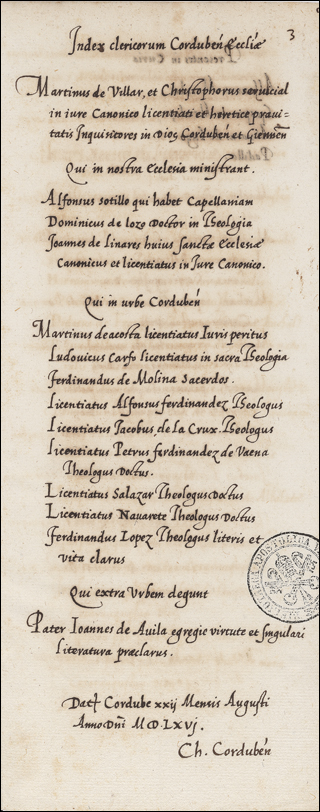 3
Index clericorum Cordubeń Ecclīæ
Martinus de Villar, et Christophorus servicial
in iure Canonico licentiati et heretice pravi=
tatis Inquisitores in Dioç Cordubeń et Gienneń
Qui in nostra Ecclesia ministrant.
Alfonsus sotillo qui habet Capellaniam
Dominicus de lozo Doctor in Theologia
Joannes de Linares huius sanctæ Ecclesiæ
Canonicus et licentiatus in Jure Canonico.
Qui in urbe Cordubeń
Martinus deacosta licentiatus Iuris peritus
Ludovicus Carso licentiatus in sacra Theologia
Ferdinandus de Molina sacerdos.
Licentiatus Alfonsus ferdinandez Theologus
Licentiatus Jacobus de la Crux. Theologus
Licentiatus Petrus ferdinandez de Vaena
Theologus Doctus.
Licentiatus Salazar Theologus Doctus
Licentiatus Navarete Theologus Doctus
Ferdinandus Lopez Theologus literis et
vita clarus
Qui extra Urbem degunt
Pater Ioannes de Avila egregie virtute et singulari
literatura præclarus.
Dat Cordube xxij Mensis Augusti
Anno Dñi MDLXVJ.
Ch. Cordubeń